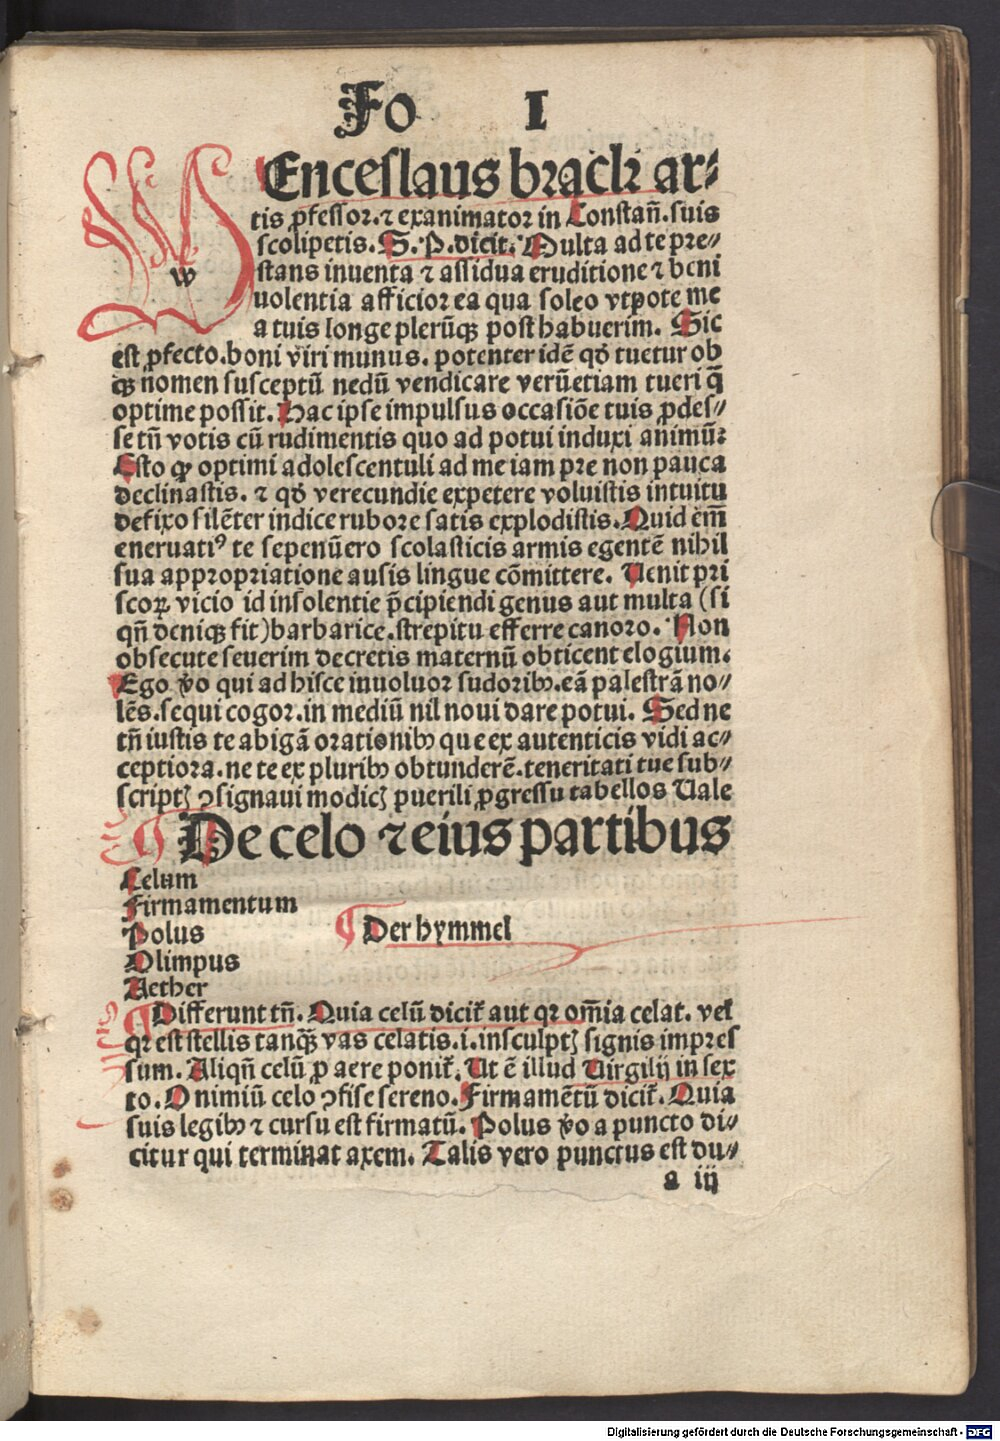 Fo I
WEnceslaus brack ar⸗
tis ꝓfessor.⁊ exanimator in Constan̄.suis
scolipetis. S. P. dicit. Multa ad te pre⸗
stans inuenta ⁊ assidua eruditione ⁊ beni
uolentia afficior ea qua soleo vtpote me
a tuis longe plerūqꝫ posthabuerim. Sic
est ꝓfecto.boni viri munus. potenter idē qđ tuetur ob
qꝫ nomen susceptū nedū vendicare verūetiam tueri q̄
optime possit. Hac ipse impulsus occasiōe tuis ꝓdes⸗
se tn̄ votis cū rudimentis quo ad potui induxi animū:
Esto ꝙ optimi adolescentuli ad me iam pre non pauca
declinastis. ⁊ qđ verecundie expetere voluistis intuitu
defixo silēter indice rubore satis explodistis. Quid em̄
eneruatiꝰ te sepenūero scolasticis armis egentē nihil
sua appropriatione ausis lingue cōmittere. Uenit pri
scoꝝ vicio id insolentie p̄cipiendi genus aut multa (si
qn̄ deniqꝫ fit) barbarice.strepitu efferre canoro. Non
obsecute seuerim decretis maternū obticent elogium.
Ego ꝟo qui ad hisce inuoluor sudoribꝫ.eā palestrā no⸗
lēs.sequi cogor.in mediū nil noui dare potui. Sed ne
tn̄ iustis te abigā orationibꝫ que ex autenticis vidi ac⸗
ceptiora.ne te ex pluribꝫ obtunderē.teneritati tue sub⸗
scriptꝫ ꝯsignaui modicꝫ puerili ꝓgressu tabellos Uale
De celo ⁊ eius partibus
Celum
Firmamentum
Polus Der hymmel
Olimpus
Aether
Differunt tn̄. Quia celū dicit̉ aut qꝛ om̄ia celat. vel
qꝛ est stellis tanqꝫ vas celatis.i.insculptꝫ signis impres
sum. Aliqn̄ celū ꝓ aere ponit̉. Ut ē illud Uirgilij in sex
to. O nimiū celo ꝯfise sereno. Firmamētū dicit̉. Quia
suis legibꝫ ⁊ cursu est firmatū. Polus ꝟo a puncto di⸗
citur qui terminat axem. Talis vero punctus est du⸗
a iij
w
Digitalisierung gefördert durch die Deutsche Forschungsgemeinschaft - DFG